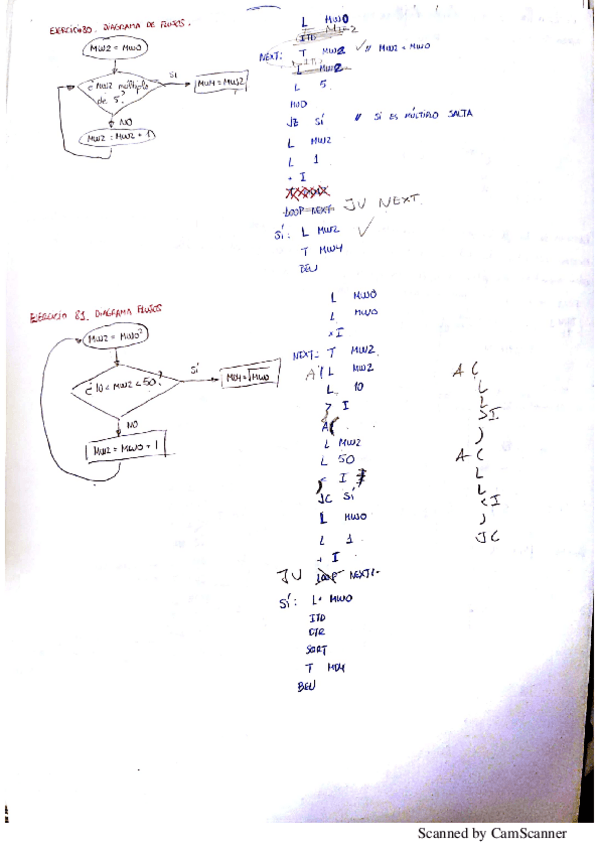 EJERCICIO 80. DIAGRAMA DE FLUJOS.
MW2 = MW0
¿MW2 múltiplo
de 5?
SI
MW4 = MW2
NO
MW2 = MW2 + 1
L MW0
ITD
NEXT: T MW2 ✓ // MW2 = MW0
L MW2
L 5
MOD
JZ SÍ // SI ES MÚLTIPLO SALTA
L MW2
L 1
+ I
LOOP NEXT JU NEXT
SÍ: L MW2 ✓
T MW4
BEU
EJERCICIO 81. DIAGRAMA FLUJOS
MW2 = MW0²
¿10 < MW2 < 50?
SÍ
MD4 = √MW0
NO
MW2 = MW0 + 1
L MW0
L MW0
×I
NEXT: T MW2
A( L MW2
L 10
> I
A(
L MW2
L 50
) < I
JC SÍ
L MW0
L 1
+ I
JU LOOP NEXT
SÍ: L MW0
ITD
DTR
SQRT
T MD4
BEU
A (
L
L
>I
)
A (
L
L
<I
)
JC
Scanned by CamScanner